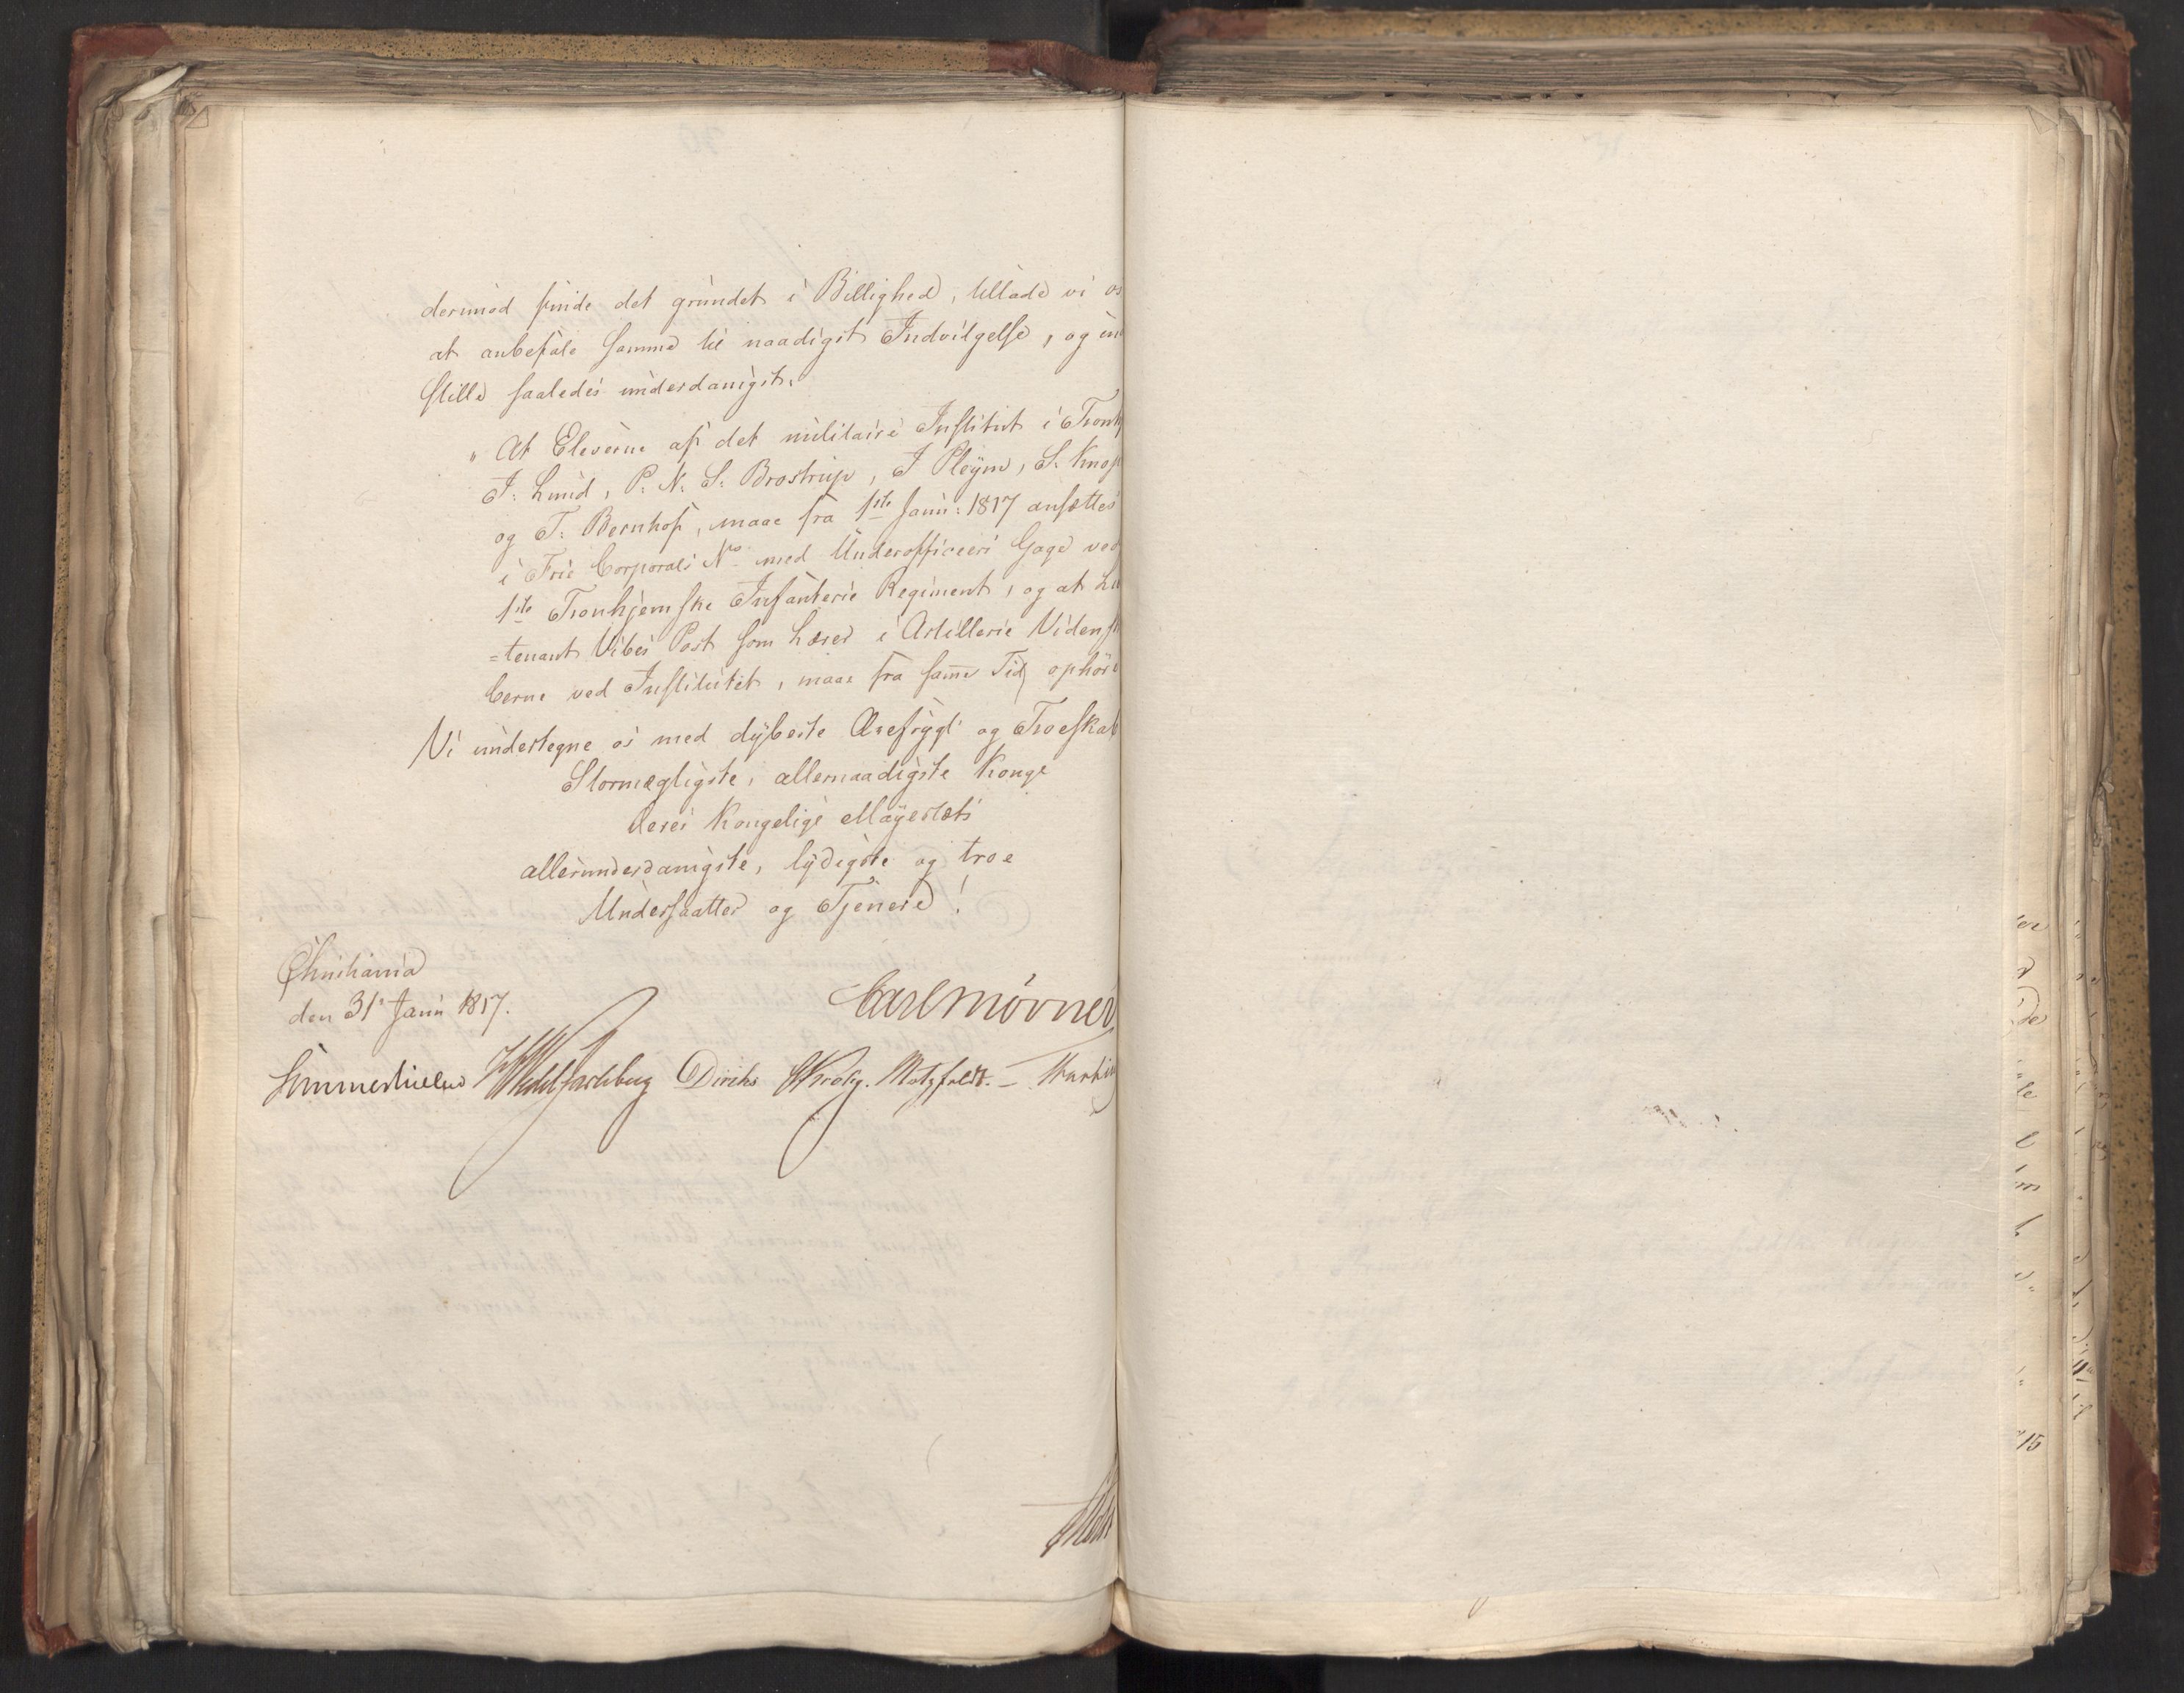 dermed finde det grundet i Billighed, tillade vi os
at anbefale samme til naadigst Indvilgelse, og ind
stille saaledes underdanigst:
" At Eleverne af det militaire Institut i Tronh
J: Lund, P. N. S. Brostrup, J Pleym, S. Knoph
og T: Bernhoft, maae fra 1ste Janu: 1817 ansættes
i Frie Corporals No med Underofficeers Gage ved
1ste Tronhjemske Infanterie Regiment, og at Lu
=tenant Vibes Post som Lærer i Artillerie Videnska
berne ved Institutet, maae fra samme Tid ophöre
Vi undertegne os med dybeste Ærefrygt og Troeskab
Stormægtigste, allernaadigste Konge
deres Kongelige Mayestæts
allerunderdanigste, lydigste og troe
Undersaatter og Tjenere!
Christiania
den 31. Janu 1817.
Carl Mörner
Sommerhielm HWedelJarlsberg Diriks Krohg. Motzfeldt. -
15